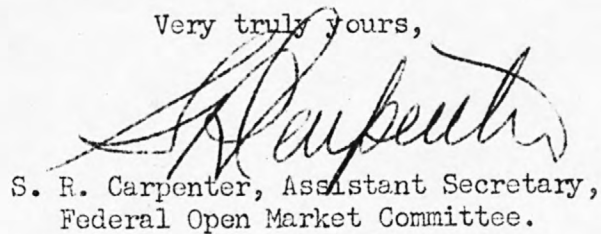 Very truly yours,
S R Carpenter
S. R. Carpenter, Assistant Secretary,
Federal Open Market Committee.